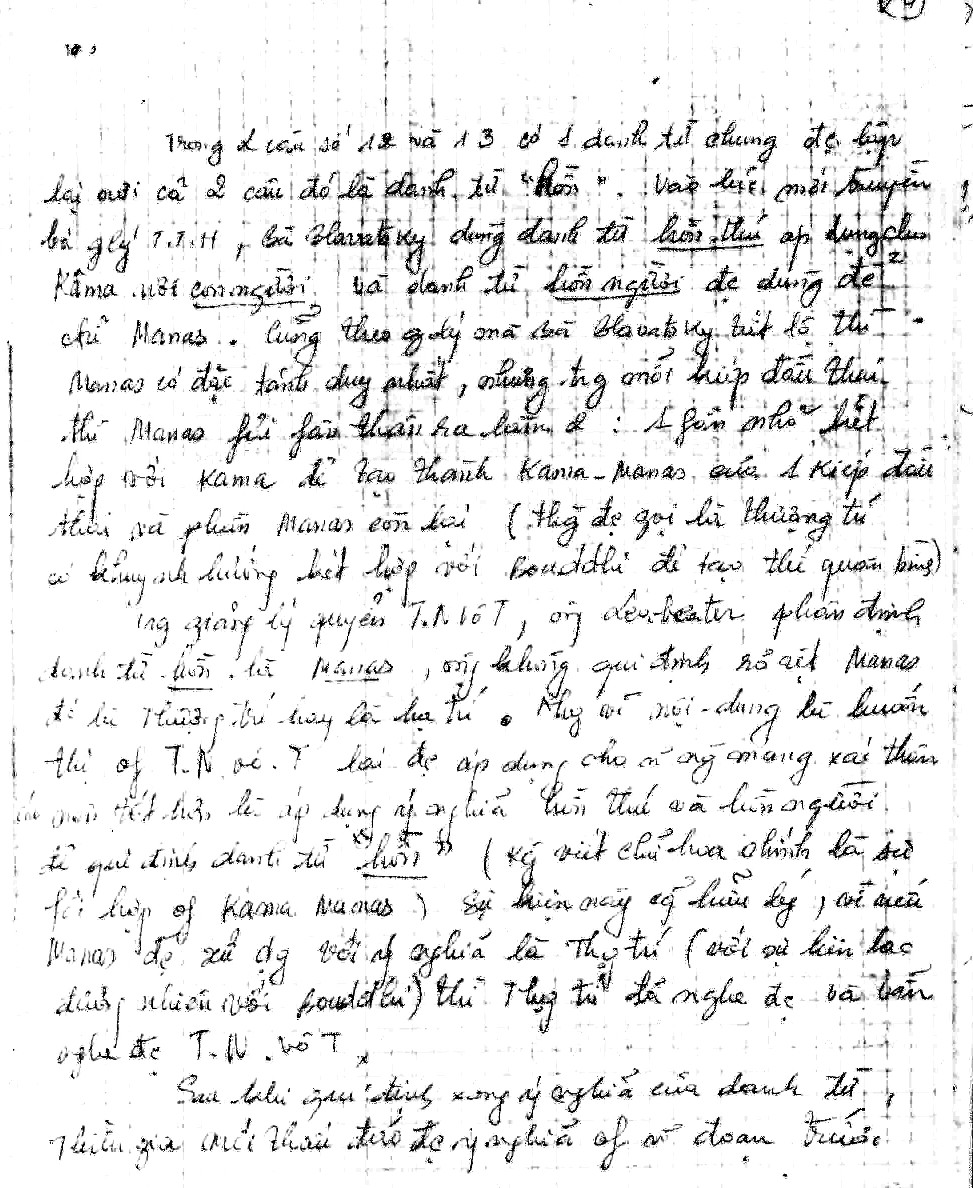 Trong 2 câu số 12 và 13 có 1 danh từ chung đc lập
lại nơi cả 2 câu đó là danh từ "hồn". Vào lúc mới truyền
bá glý T.T.H, bà Blavatsky dùng danh từ hồn thú áp dụng cho
Kâma với con người và danh từ hồn người đc dùng để
chỉ Manas. Cũng theo glý mà bà Blavatsky tiết lộ thì
Manas có đặc tánh duy nhất, nhưng trg mỗi kiếp đầu thai
thì Manas fải fân thân ra làm 2 : 1 fần nhỏ kết
hợp với Kama để tạo thành Kama-Manas của 1 kiếp đầu
thai và phần Manas còn lại (thg đc gọi là thượng trí
có khuynh hướng kết hợp với Bouddhi để tạo thế quân bình)
Trg giảng lý quyển T.N Vô T, ôg Leadbeater phân định
danh từ hồn là Manas, ôg không qui định rõ rệt Manas
đó là Thượng trí hay là hạ trí. Nhg vì nội-dung
thì of T.N vô. T lại đc áp dụng cho ~ ng mang xác thân
nên tốt hơn là áp dụng ý nghĩa hồn thú và hồn người
để qui định danh từ "hồn" (
fối hợp of Kama Manas) Sự kiện này cg hữu lý, vì nếu
Manas đc xử dg với ý nghĩa là Thg trí (với sự liên lạc
đương nhiên với Bouddhi) thì Thg trí đã nghe đc và vẫn
nghe đc T.N. Vô T
Sau khi qui định xong ý nghĩa của danh từ,
thiền giả mới thấu đáo đc ý nghĩa of ~ đoạn trước